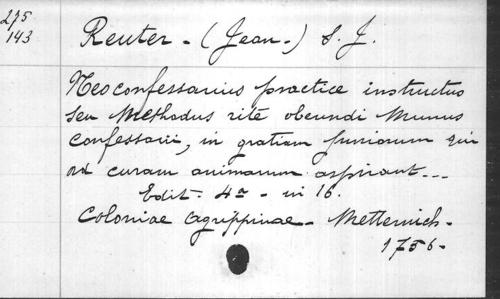 275
143
Reuter - (Jean-) S. J.
Neoconfessarius practice instructus
seu Methodus rite obeundi Munus
Confessarii, in gratiam juniorum qui
ad curam animarum aspirant...
Edit. 4a - in 16.
Coloniae Agrippinae - Metternich -
1756 -